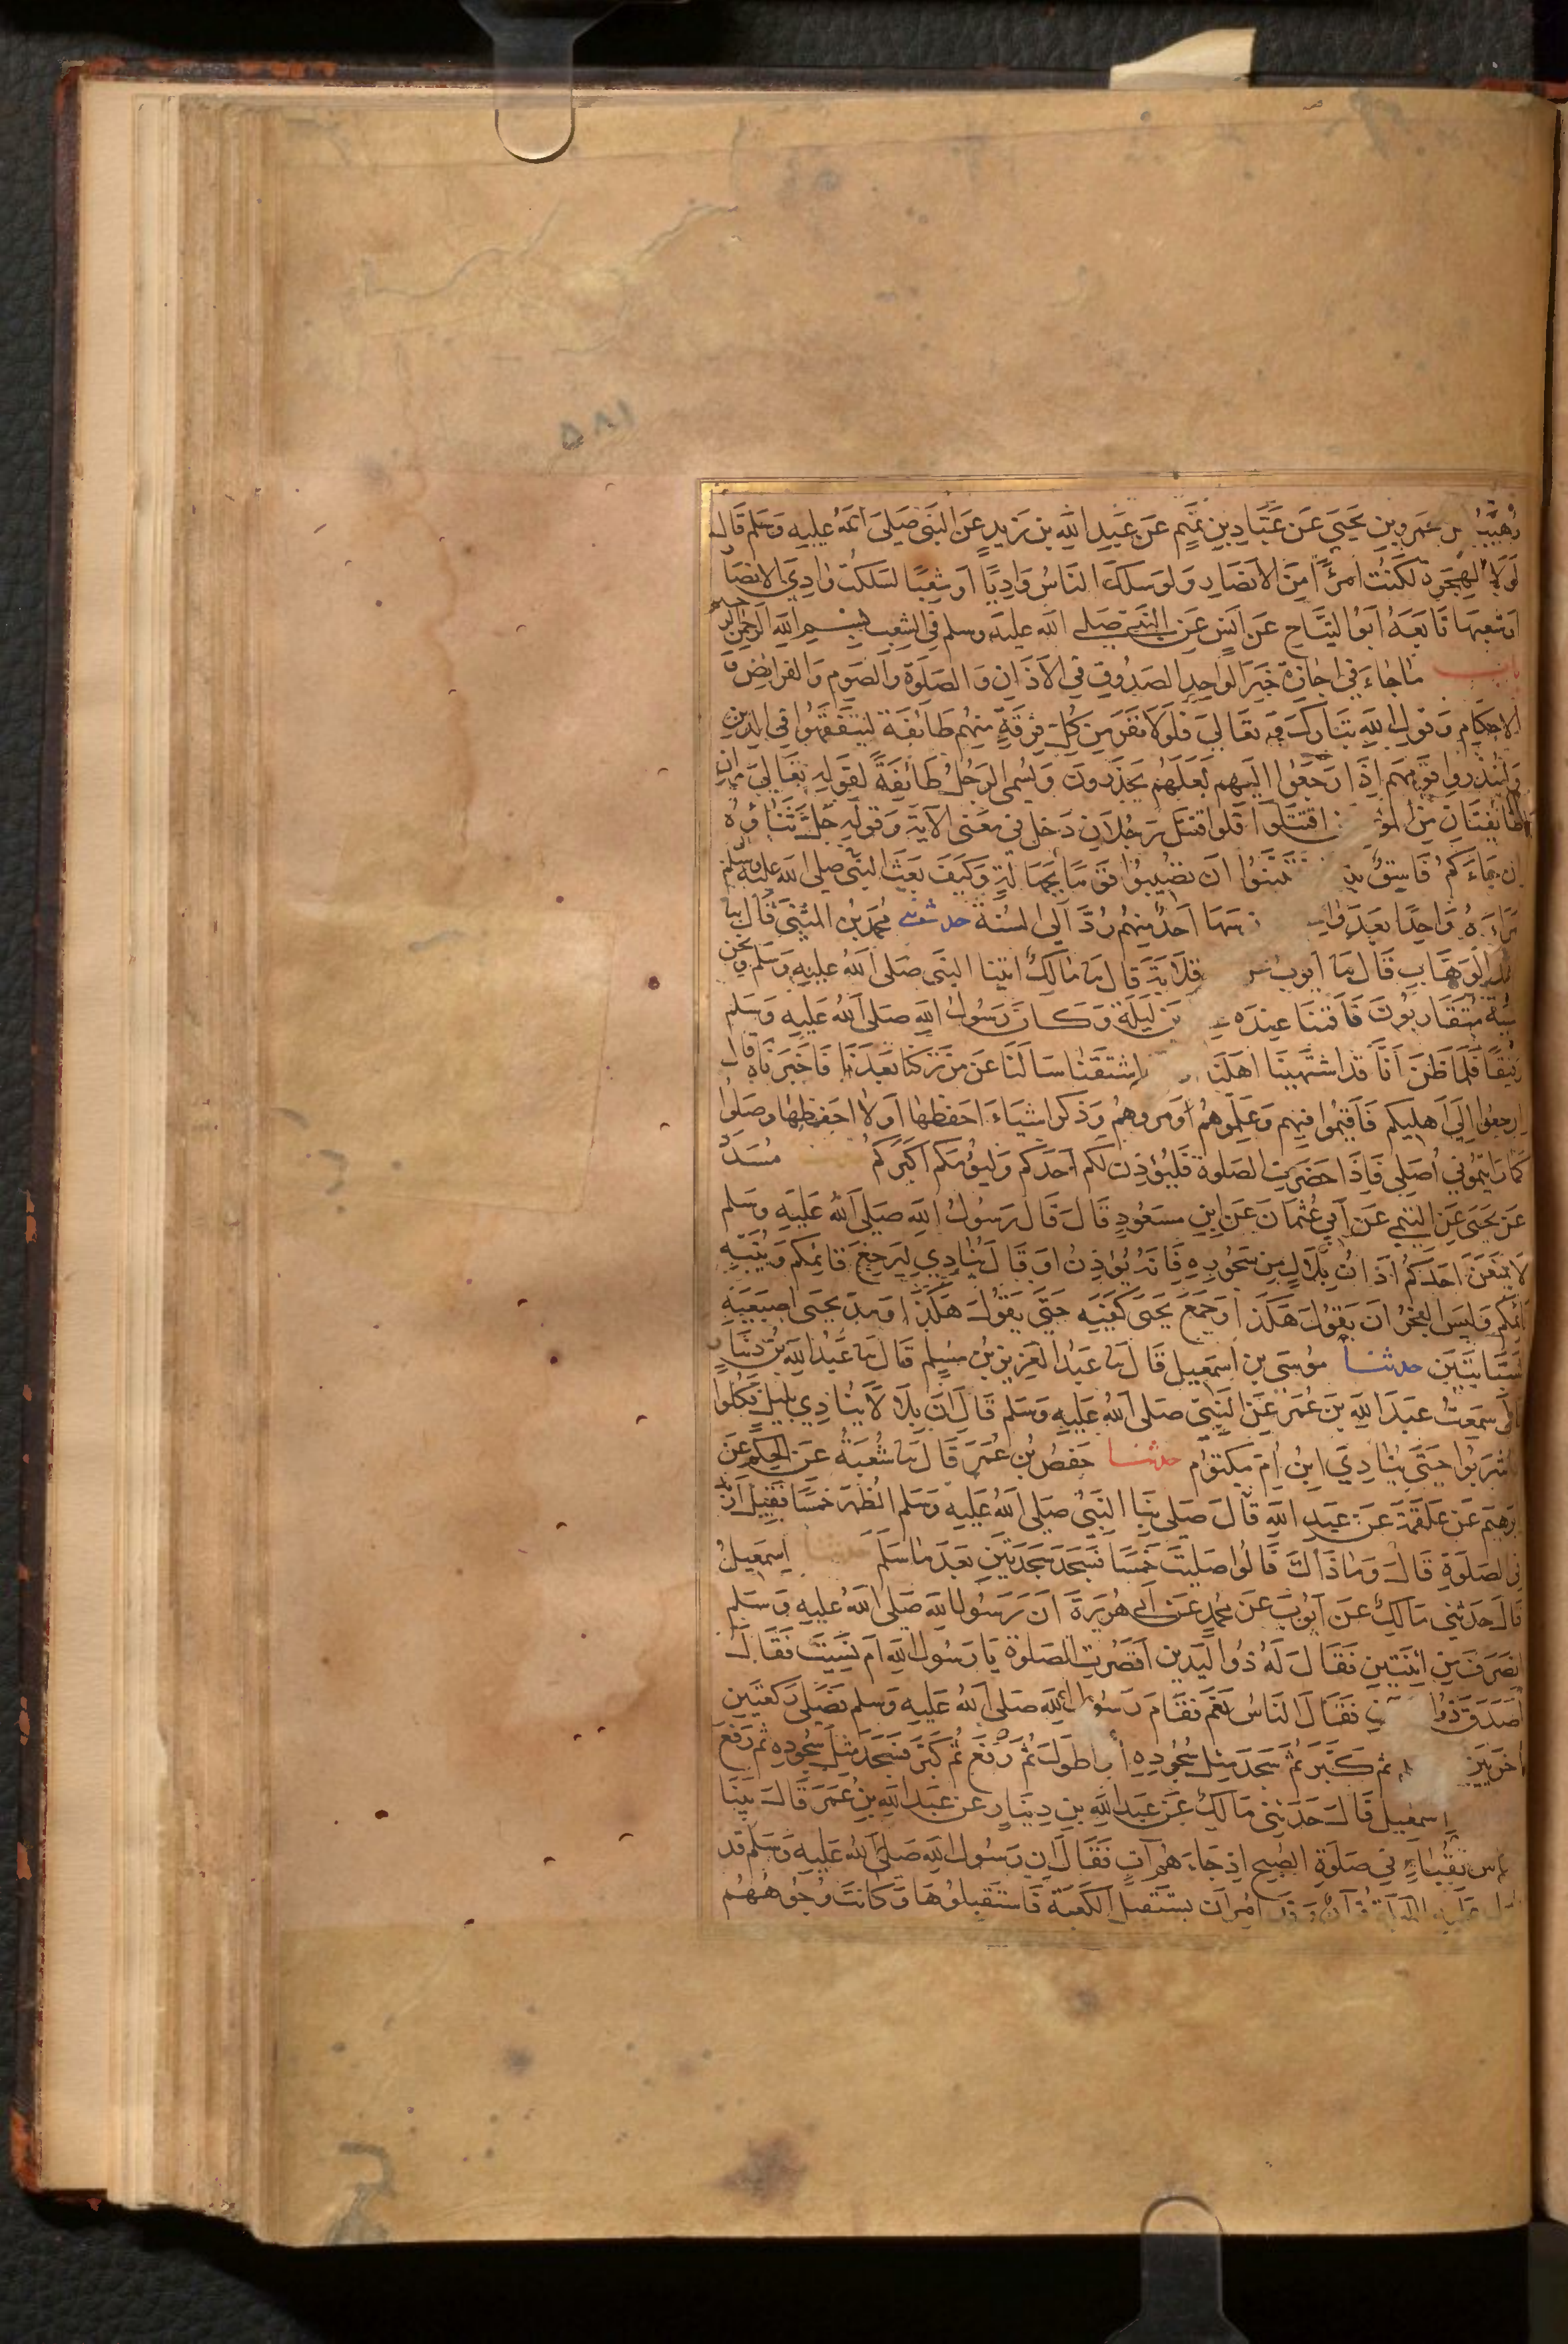 ١٨٥
وهيب عن عمرو بن يحيى عن عباد بن تميم عن عبد الله بن زيد عن النبي صلى الله عليه وسلم قال
لولا الهجرة لكنت امرأ من الانصار ولو سلك الناس واديا او شعبا لسلكت وادي الانصا
او شعبها تابعه ابو التياح عن انس عن النبي صلى الله عليه وسلم في الشعب بسم الله الرحمن الرحيم
باب ما جاء في اجازة خبر الواحد الصدوق في الاذان والصلوة والصوم والفرائض و
الاحكام وقول الله تبارك وتعالى فلولا نفر من كل فرقة منهم طائفة ليتفقهوا في الدين
ولينذروا قومهم اذا رجعوا اليهم لعلهم يحذرون ويسمى الرجل طائفة لقوله تعالى وان
طائفتان من المؤ اقتتلوا فلو اقتتل رجلان دخل في معنى الآية وقوله جل ثناؤه
ان جاءكم فاسق تبينوا ان تصيبوا قوما بجهالة وكيف بعث النبي صلى الله عليه وسلم
امراءه واحدا بعد سها احد منهم رد الى السنة حدثني محمد بن المثنى قال نا
عبد الوهاب قال نا ايوب قلابة قال نا مالك اتينا النبي صلى الله عليه وسلم ونحن
شببة متقاربون فاقمنا عنده ين ليلة وكان رسول الله صلى الله عليه وسلم
رفيقا فلما ظن انا قد اشتهينا اهلنا اشتقنا سالنا عن من تركنا بعدنا فاخبرناه قال
ارجعوا الى اهليكم فاقيموا فيهم وعلموهم ومروهم وذكر اشياء احفظها او لا احفظها وصلوا
كما رايتموني اصلي فاذا حضرت الصلوة فليؤذن لكم احدكم وليؤمكم اكبركم مسدد
عن يحيى عن التيمي عن ابي عثمان عن ابن مسعود قال قال رسول الله صلى الله عليه وسلم
لا يمنعن احدكم اذان بلال من سحوره فانه يؤذن او قال ينادي ليرجع قائمكم وينبه
نائمكم وليس الفجر ان يقول هكذا وجمع يحيى كفيه حتى يقول هكذا ومد يحيى اصبعيه
السبابتين حدثنا موسى بن اسمعيل قال نا عبد العزيز بن مسلم قال نا عبد الله بن دينار
قال سمعت عبد الله بن عمر عن النبي صلى الله عليه وسلم قال ان بلالا ينادي بليل فكلوا
واشربوا حتى ينادي ابن ام مكتوم حدثنا حفص بن عمر قال نا شعبة عن الحكم عن
ابرهيم عن علقمة عن عبد الله قال صلى بنا النبي صلى الله عليه وسلم الظهر خمسا فقيل ازيد
في الصلوة قال وما ذاك قالوا صليت خمسا فسجد سجدتين بعد ما سلم حدثنا اسمعيل
قال حدثني مالك عن ايوب عن محمد عن ابي هريرة ان رسول الله صلى الله عليه وسلم
انصرف من اثنتين فقال له ذو اليدين اقصرت الصلوة يا رسول الله ام نسيت فقال
اصدق ذو ا فقال الناس نعم فقام رسول الله صلى الله عليه وسلم فصلى ركعتين
اخريين ثم كبر ثم سجد مثل سجوده او اطول ثم رفع ثم كبر فسجد مثل سجوده ثم رفع
اسمعيل قال حدثني مالك عن عبد الله بن دينار عن عبد الله بن عمر قال بينا
الناس بقباء في صلوة الصبح اذ جاءهم آت فقال ان رسول الله صلى الله عليه وسلم قد
انزل عليه الليلة قرآن وقد امر ان يستقبل الكعبة فاستقبلوها وكانت وجوههم